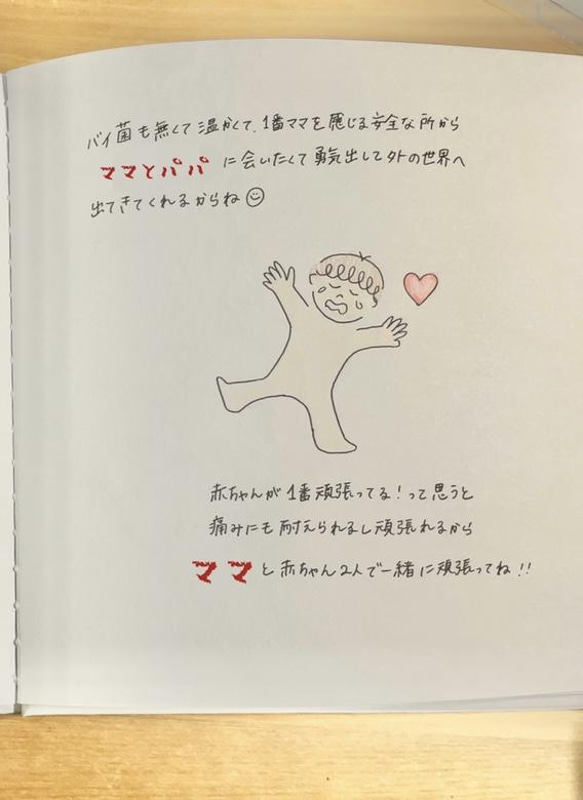 バイ菌も無くて温かくて、1番ママを感じる安全な所から
ママとパパに会いたくて勇気出して外の世界へ
出てきてくれるからね☺
赤ちゃんが1番頑張ってる!って思うと
痛みにも耐えられるし頑張れるから
ママと赤ちゃん2人で一緒に頑張ってね!!